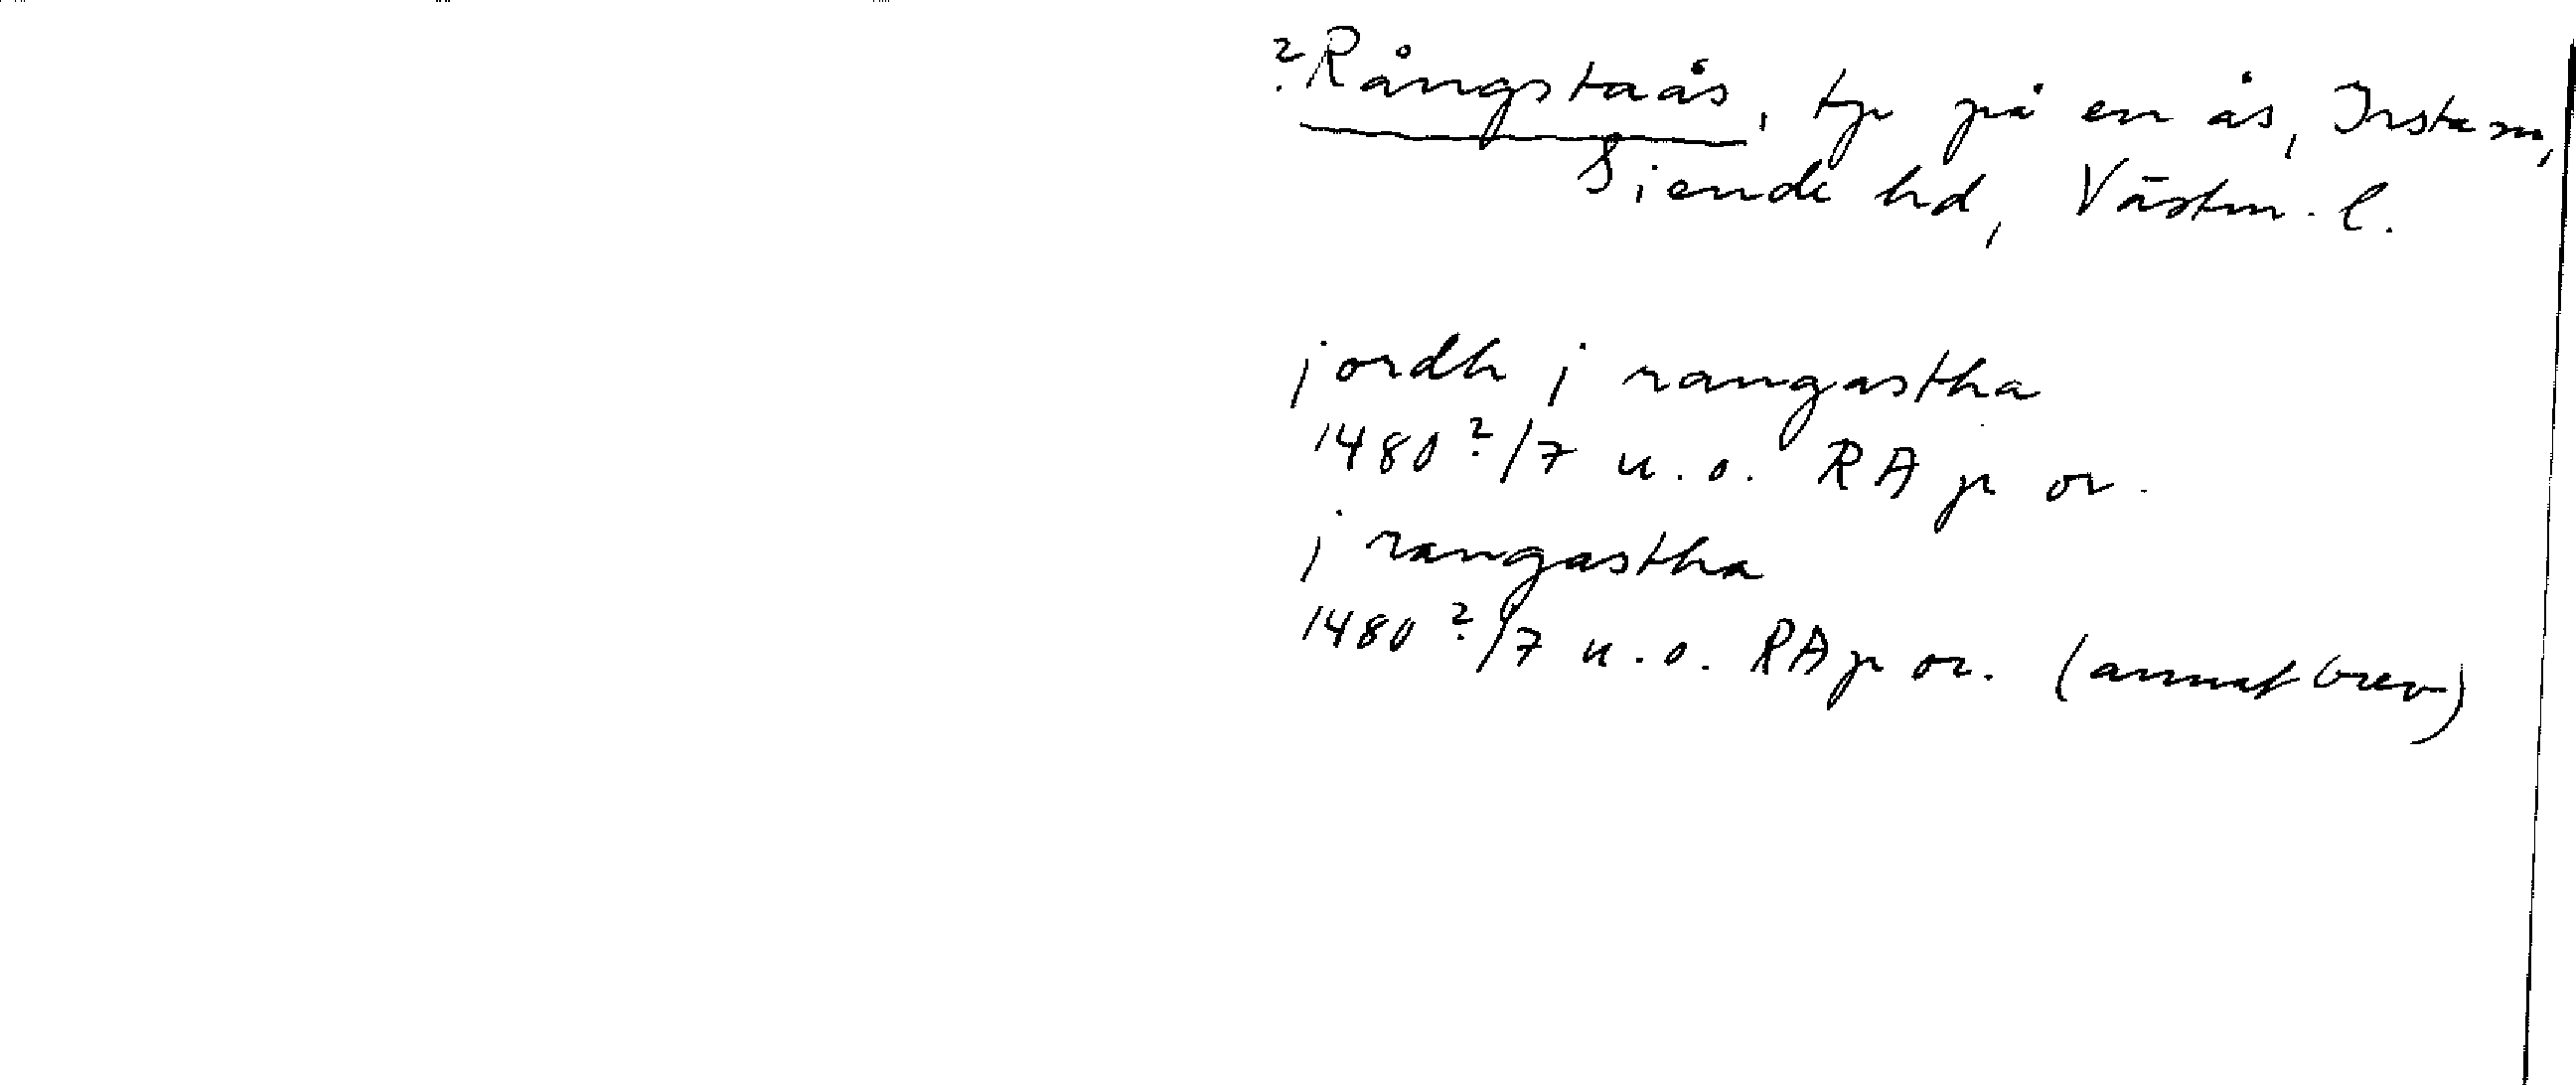 ?Rångstaås, tp på en ås, Irsta sn,
Siende hd, Västm. l.
jordh j rangastha
1480 ?/7 u.o. RA p or.
j rangastha
1480 ?/7 u.o. RA p or. (annat brev)